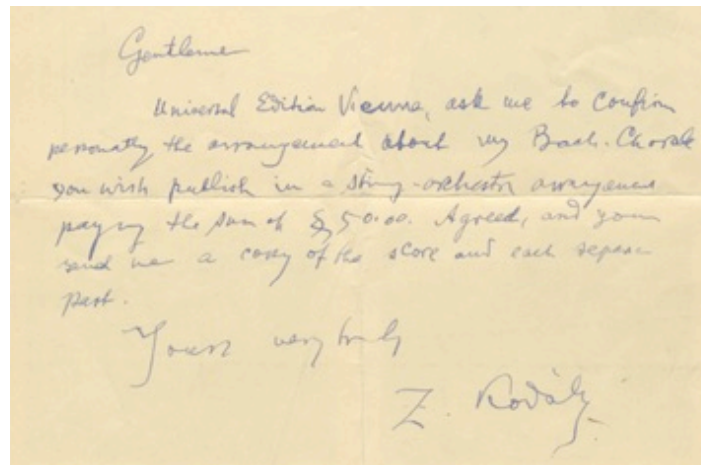 Gentleme
Universal Edition Vienna, ask me to confirm
personally the arrangement about my Bach-Chorale
you wish publish in a string-orchestra arrangement
paying the sum of $ 50.00. Agreed, and
send me a copy of the score and each separ
part.
Yours very truly
Z. Kodály.